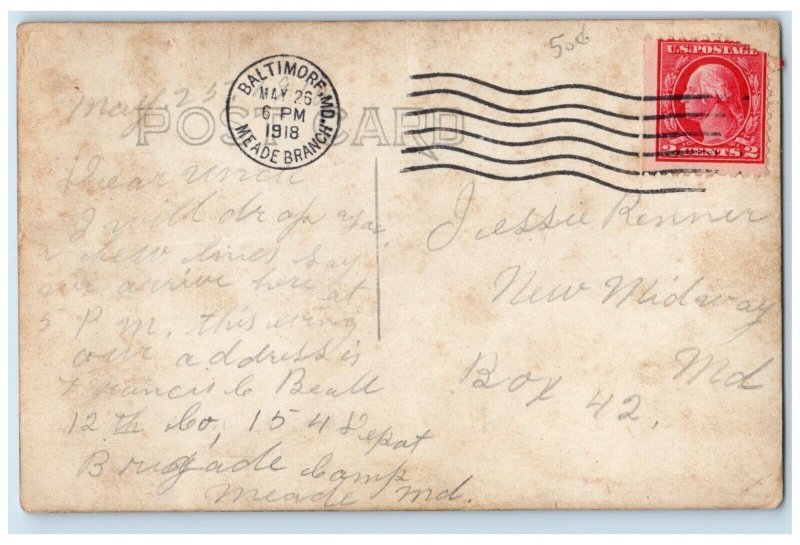 50¢
U.S. POSTAGE
2 CENTS 2
BALTIMORE, MD.
MAY 26
6 PM
1918
MEADE BRANCH
POST CARD
May 25
Dear Uncle
I will drop you
a few lines say
we arrive here at
5 P M. this evening
our address is
Francis C Beall
12 th Co, 154 Depot
Brigade Camp
Meade Md.
Jessie Renner
New Midway
Box 42, Md